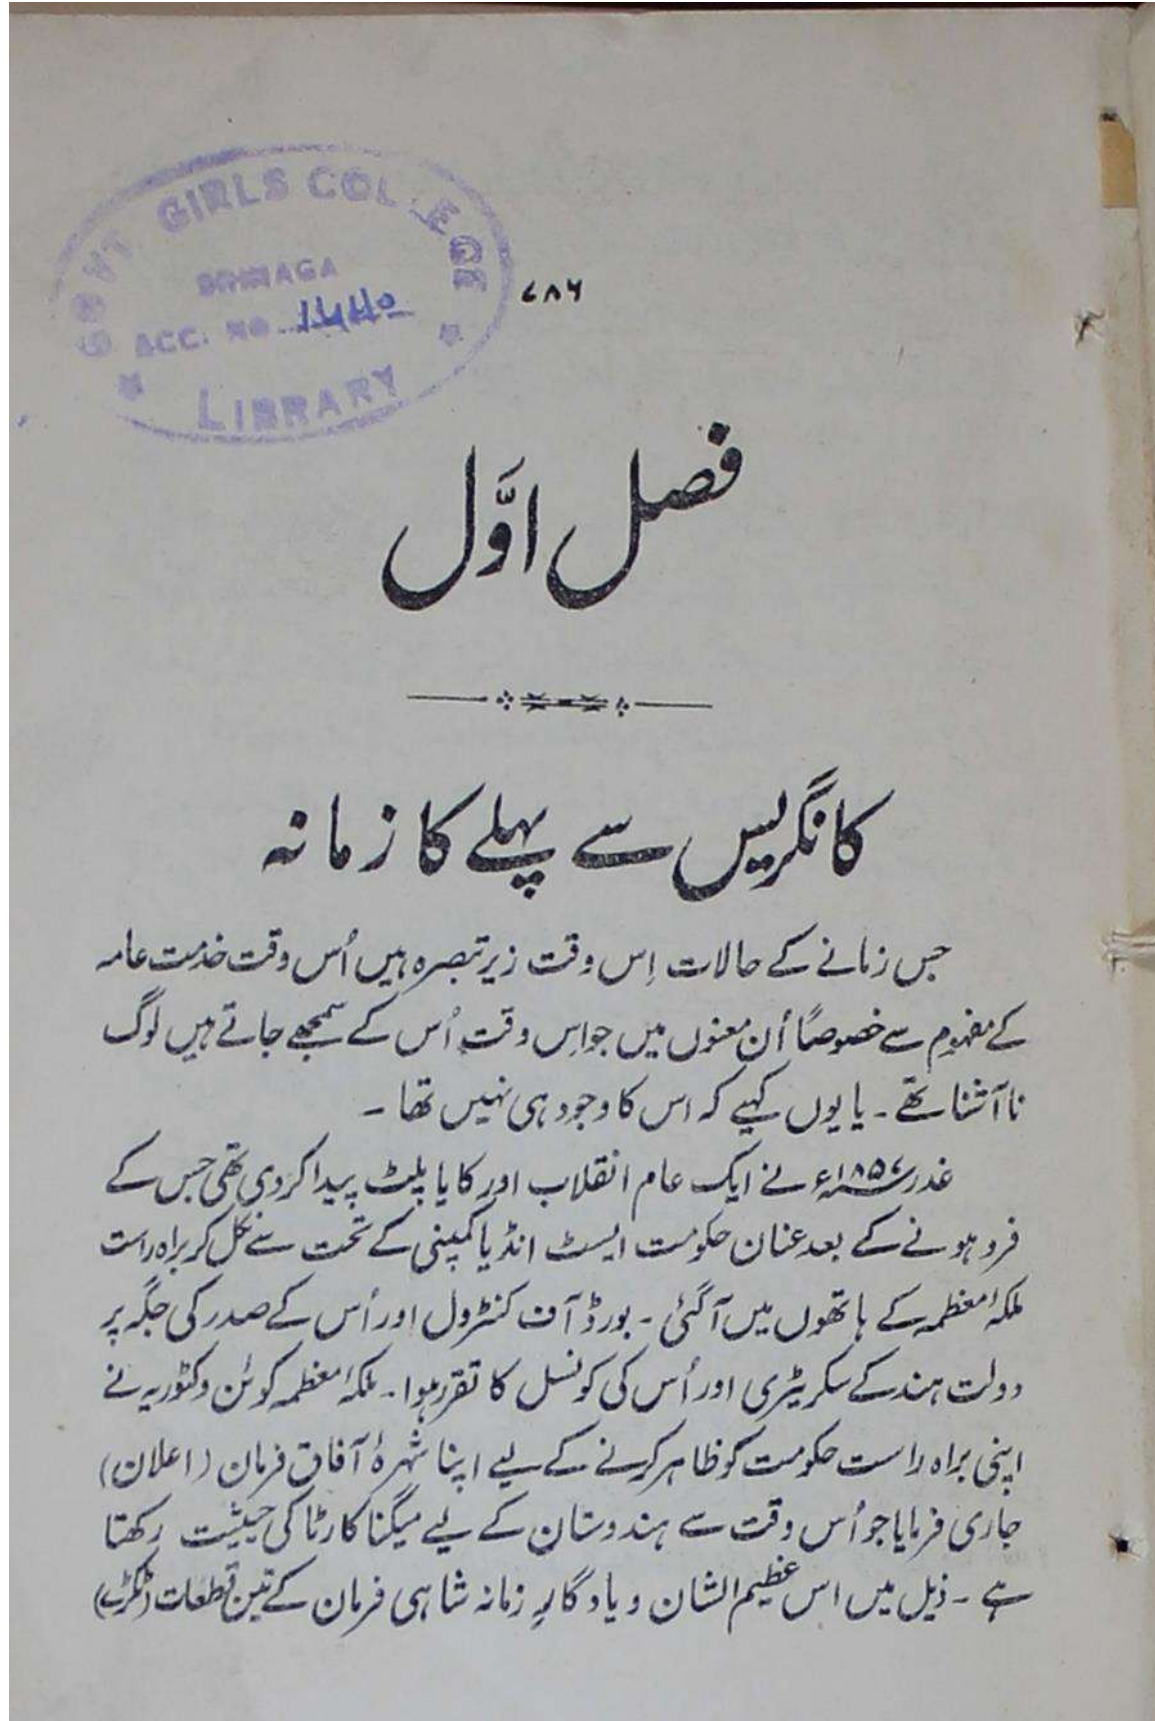 GOVT GIRLS COLLEGE
SRINAGA
ACC. NO.
LIBRARY
۷۸۶
فصل اوّل
کانگریس سے پہلے کا زمانہ
جس زمانے کے حالات اِس وقت زیر تبصرہ ہیں اُس وقت خدمت عامہ
کے مفہوم سے خصوصاً اُن معنوں میں جو اِس وقت اُس کے سمجھے جاتے ہیں لوگ
نا آشنا تھے ۔ یا یوں کہیے کہ اس کا وجود ہی نہیں تھا ۔
غدر ۱۸۵۷ء نے ایک عام انقلاب اور کایا پلٹ پیدا کر دی تھی جس کے
فرو ہونے کے بعد عنان حکومت ایسٹ انڈیا کمپنی کے تحت سے نکل کر براہ راست
ملکۂ معظمہ کے ہاتھوں میں آگئی ۔ بورڈ آف کنٹرول اور اُس کے صدر کی جگہ پر
دولت ہند کے سکریٹری اور اُس کی کونسل کا تقرر ہوا ۔ ملکۂ معظمہ کوئن وکٹوریہ نے
اپنی براہ راست حکومت کو ظاہر کرنے کے لیے اپنا شہرۂ آفاق فرمان (اعلان)
جاری فرمایا جو اُس وقت سے ہندوستان کے لیے میگنا کارٹا کی حیثیت رکھتا
ہے ۔ ذیل میں اس عظیم الشان و یادگارِ زمانہ شاہی فرمان کے تین قطعات (ٹکڑے)